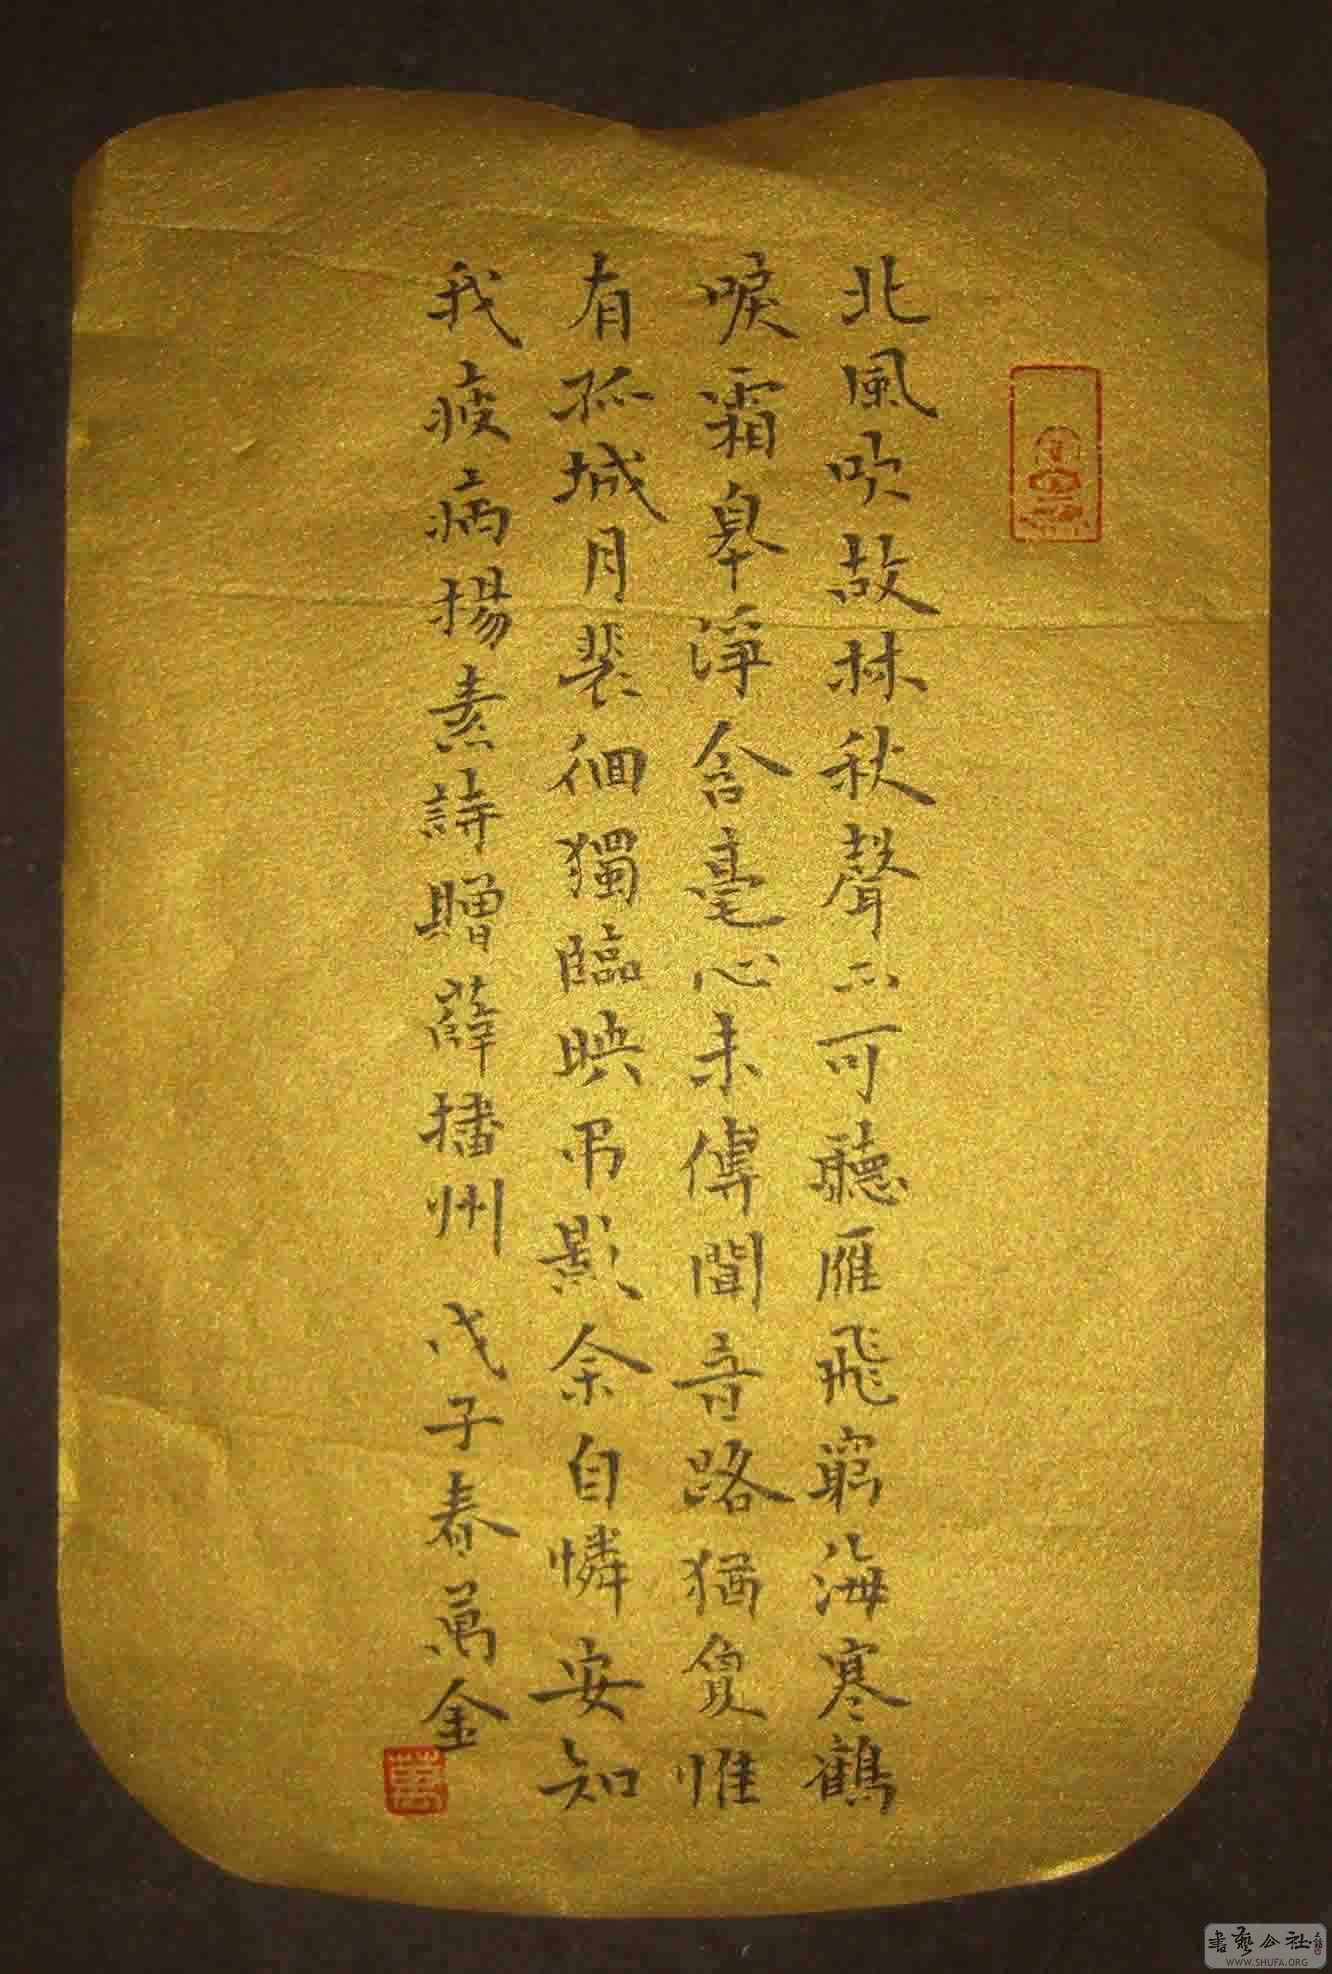 北風吹故林秋聲不可聽雁飛窮海寒鶴
唳霜皋淨含毫心未傳聞音路猶敻惟
有孤城月裴徊獨臨映弔影余自憐安知
我疲病揚素詩贈薛播州 戊子春萬金
萬
書藝公社
WWW.SHUFA.ORG